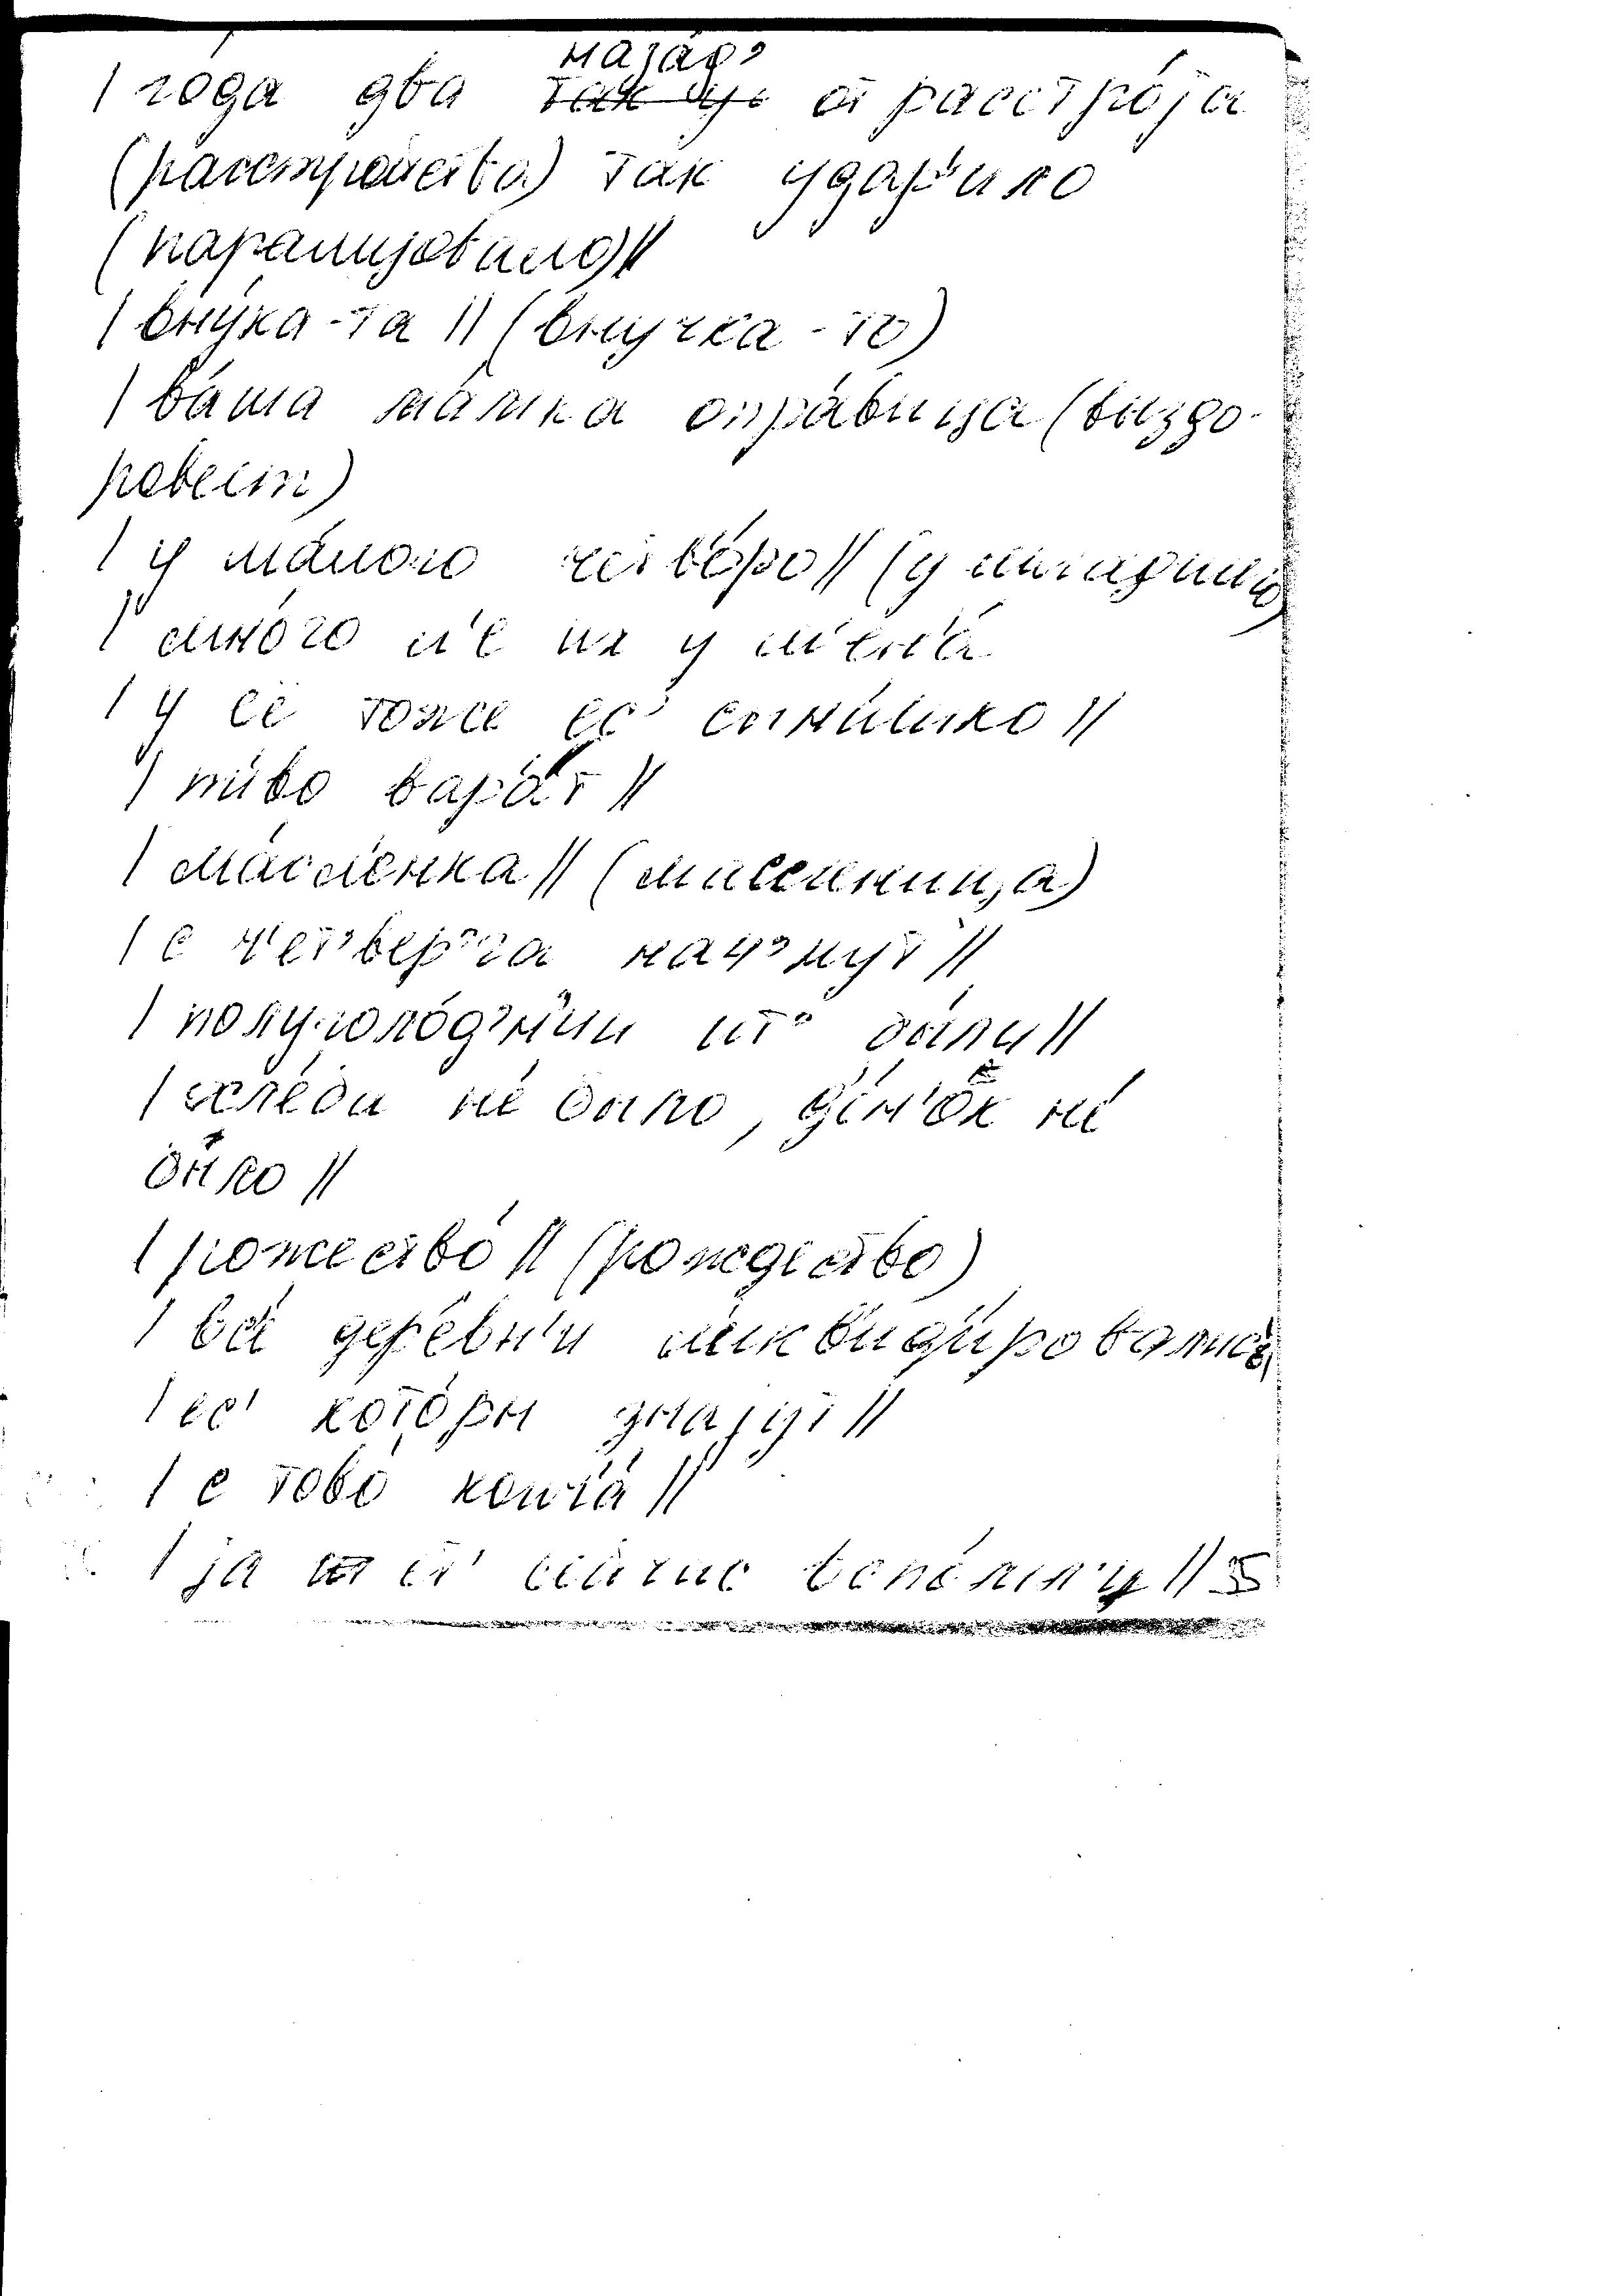 назáдъ
| гóда два так уж от расстрójа
(расстройства) так удар'ило
(парализовало)||
| внýка-та || (внучка-то)
| вáша мáмка опрáвица (виздо-
ровеет)
| у мáлого чéтвёро || (у младшего)
| мнóго л'е их у м'ен'á
| у её тоже ес' сынишко ||
| пиво вар'áт ||
| мáсленка || (масленица)
| с четверга начнут ||
| полуголóдныи были ||
| хлéба нé было, дéн'óк нé
было ||
| рожествó || (рождество)
| всé дерéвн'и ликвидировались
| ес' котóры знаjут ||
| с товó конца ||
| jа сейчас вспóмн'у ||